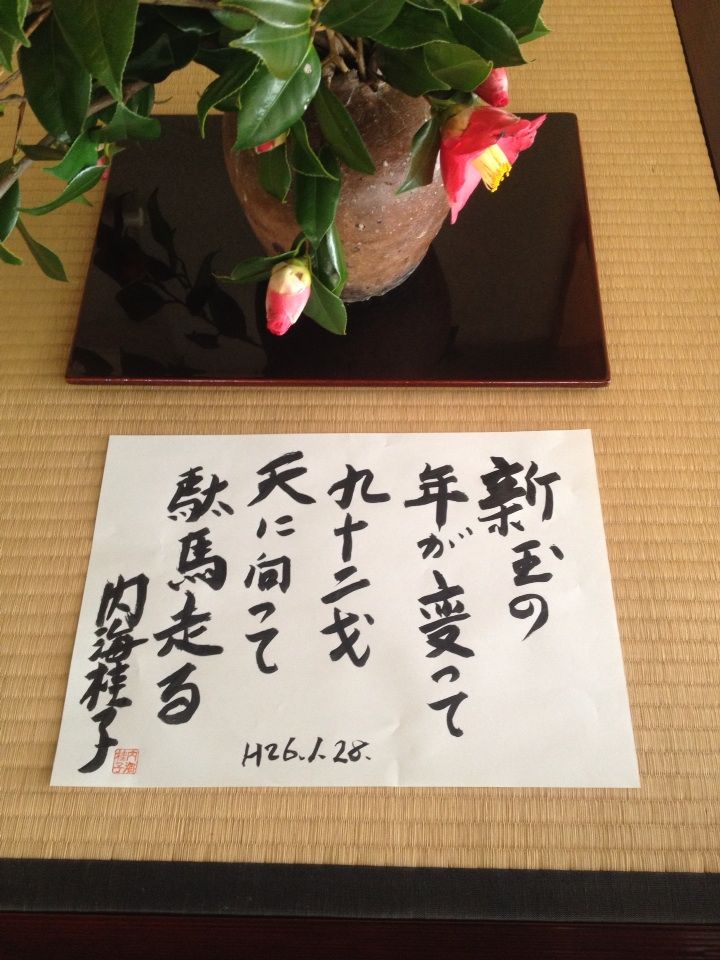 新玉の
年が変って
九十二才
天に向って
駄馬走る
内海桂子
H26.1.28.
内海
桂子